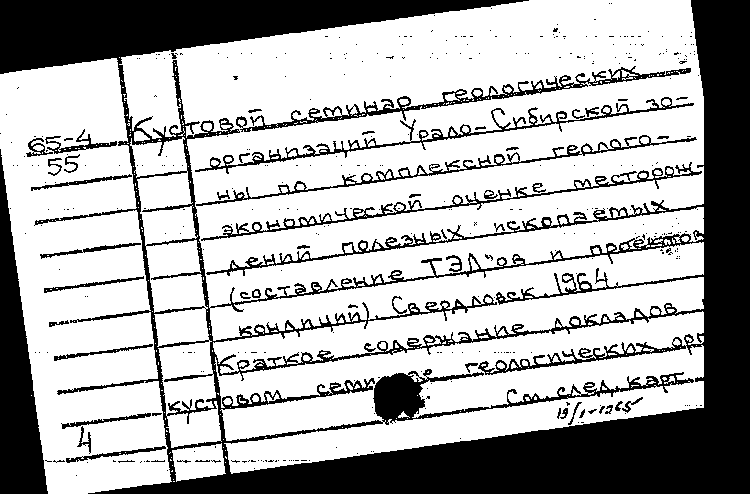 65-4
55
Кустовой семинар геологических
организаций Урало-Сибирской зо-
ны по комплексной геолого-
экономической оценке месторож-
дений полезных ископаемых
(составление ТЭД"ов и проектов
кондиций). Свердловск, 1964.
Краткое содержание докладов
кустовом семинаре геологических орг
См. след. карт
4
13/I-1965